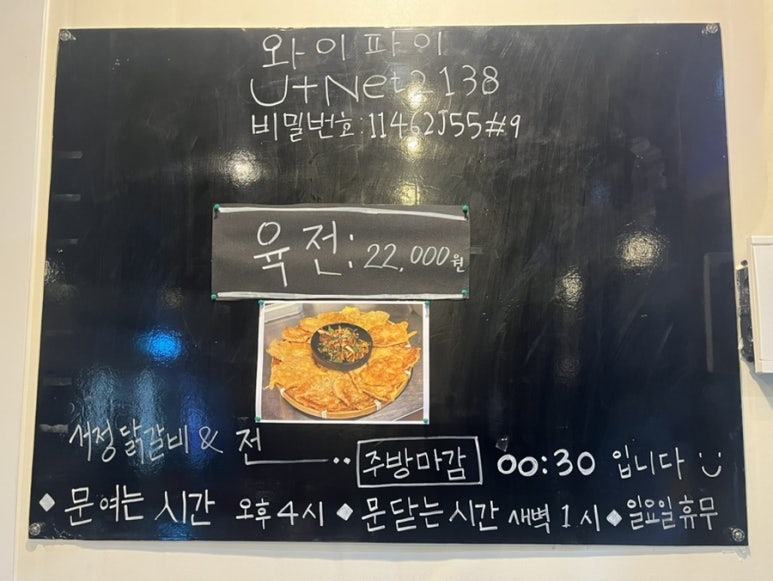 와이파이
U+Net2138
비밀번호:11462J55#9
육전: 22,000원
새정닭갈비 & 전
주방마감 00:30 입니다
◆ 문 여는 시간 오후 4시 ◆ 문 닫는 시간 새벽 1시 ◆ 일요일 휴무